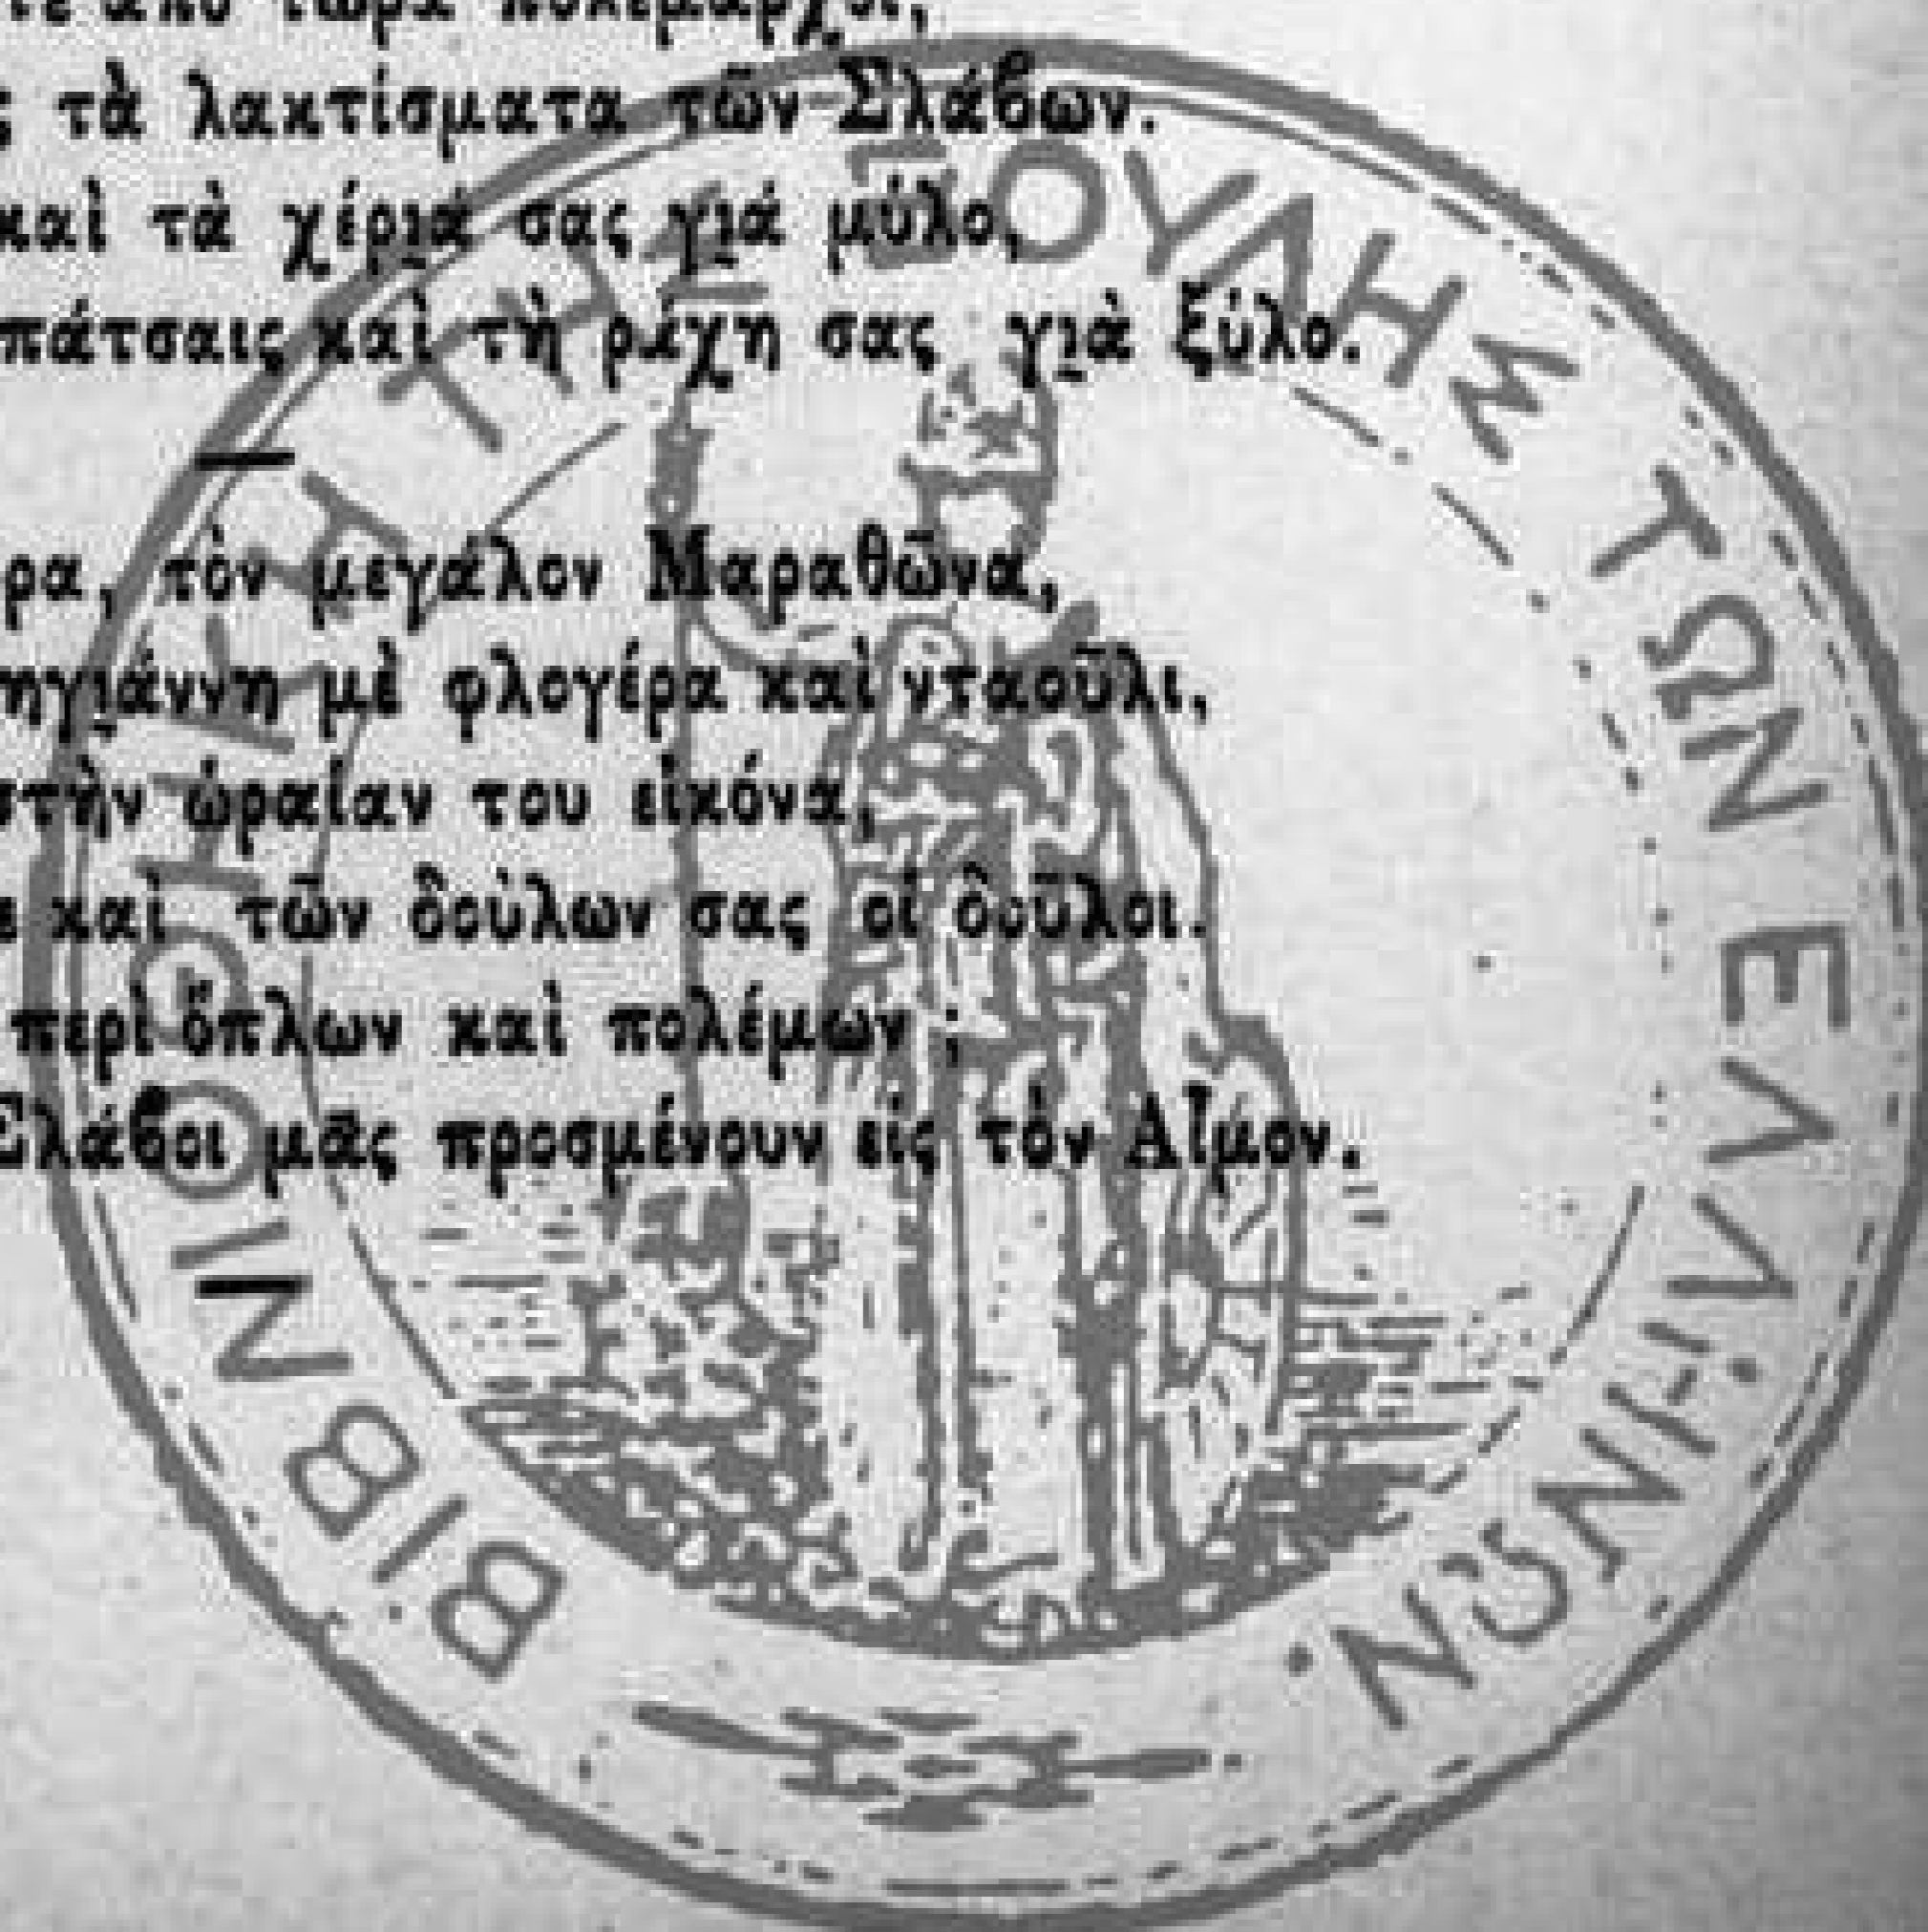 ἀπὸ τώρα πολέμαρχοι,
τὰ λακτίσματα τῶν Σλάβων.
καὶ τὰ χέρια σας γιά μύλο,
πάτσαις καὶ τὴ ράχη σας γιὰ ξύλο.
ρα, τὸν μεγάλον Μαραθῶνα,
ηγιάννη μὲ φλογέρα καὶ νταοῦλι,
στὴν ὡραίαν του εἰκόνα,
ε καὶ τῶν δούλων σας οἱ δοῦλοι.
περὶ ὅπλων καὶ πολέμων ;
Σλάβοι μᾶς προσμένουν εἰς τὸν Αἷμον.
ΒΙΒΛΙΟΘΗΚΗ ΤΗΣ ΒΟΥΛΗΣ ΤΩΝ ΕΛΛΗΝΩΝ